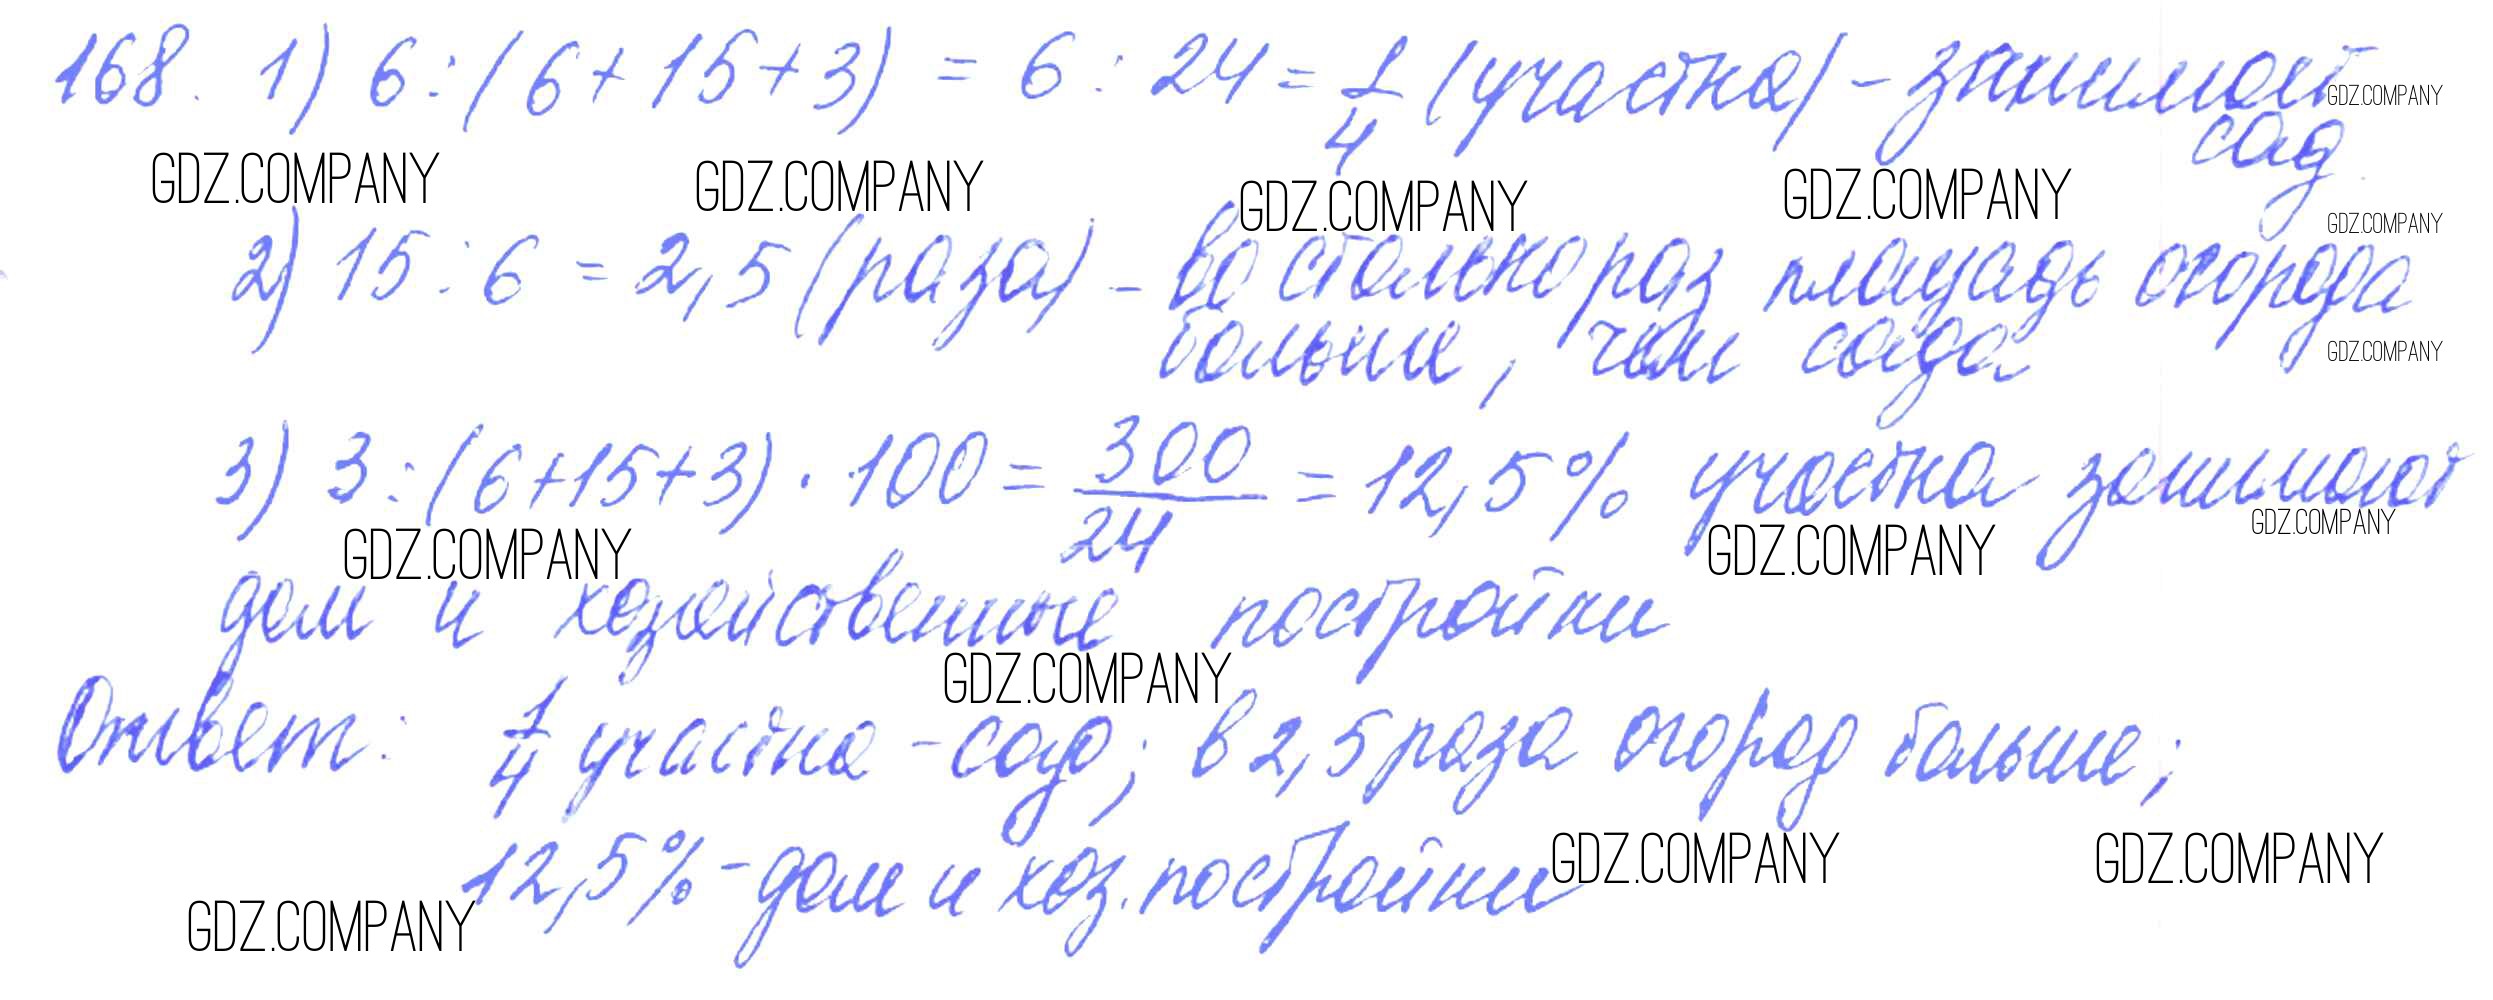 168. 1) 6:(6+15+3) = 6:24 = 1/4 (участка) - занимает
GDZ.COMPANY
сад.
GDZ.COMPANY GDZ.COMPANY GDZ.COMPANY GDZ.COMPANY
GDZ.COMPANY
2) 15:6 = 2,5 (раза) - во столько раз площадь огорода
больше, чем сада
GDZ.COMPANY
3) 3:(6+15+3)·100 = 300/24 = 12,5% участка занимают
GDZ.COMPANY GDZ.COMPANY GDZ.COMPANY
дом и хозяйственные постройки
GDZ.COMPANY
Ответ: 1/4 участка - сад; в 2,5 раза огород больше;
12,5% - дом и хоз. постройки
GDZ.COMPANY GDZ.COMPANY
GDZ.COMPANY